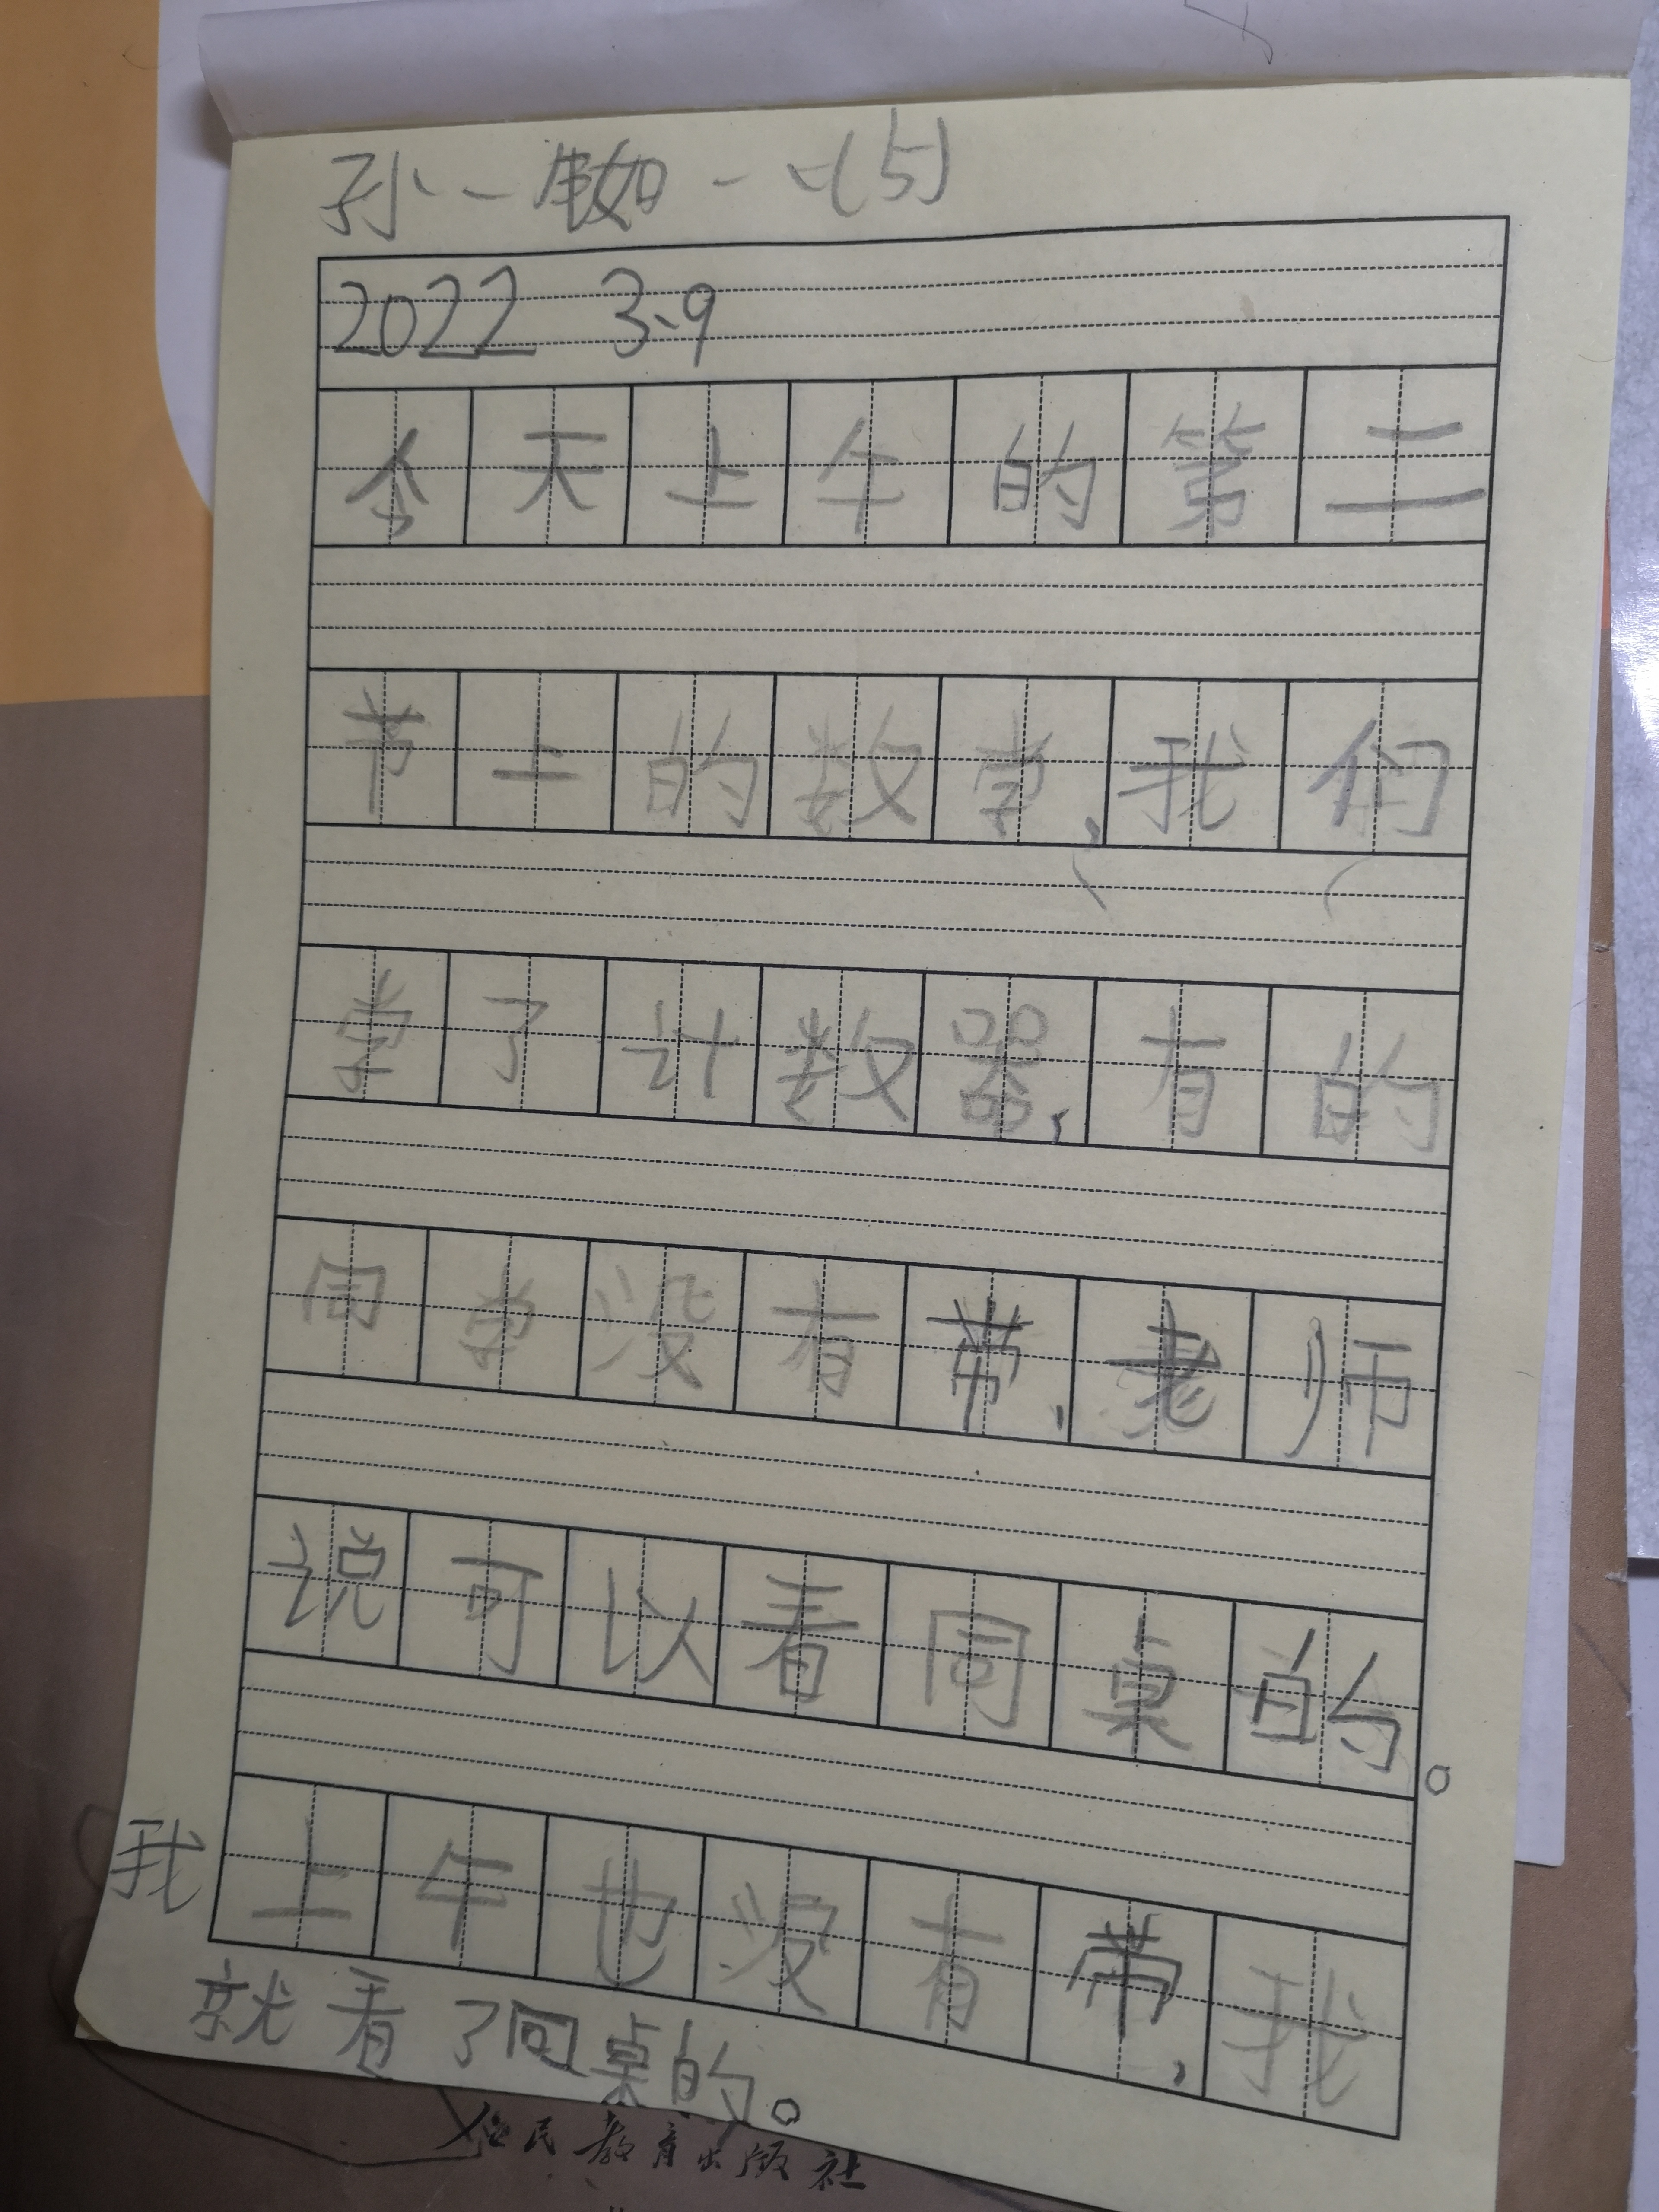 孙一 一(5)
2022 3.9
今天上午的第二
节上的数学,我们
学了计数器,有的
同学没有带,老师
说可以看同桌的。
我上午也没有带,我
就看了同桌的。
人民教育出版社